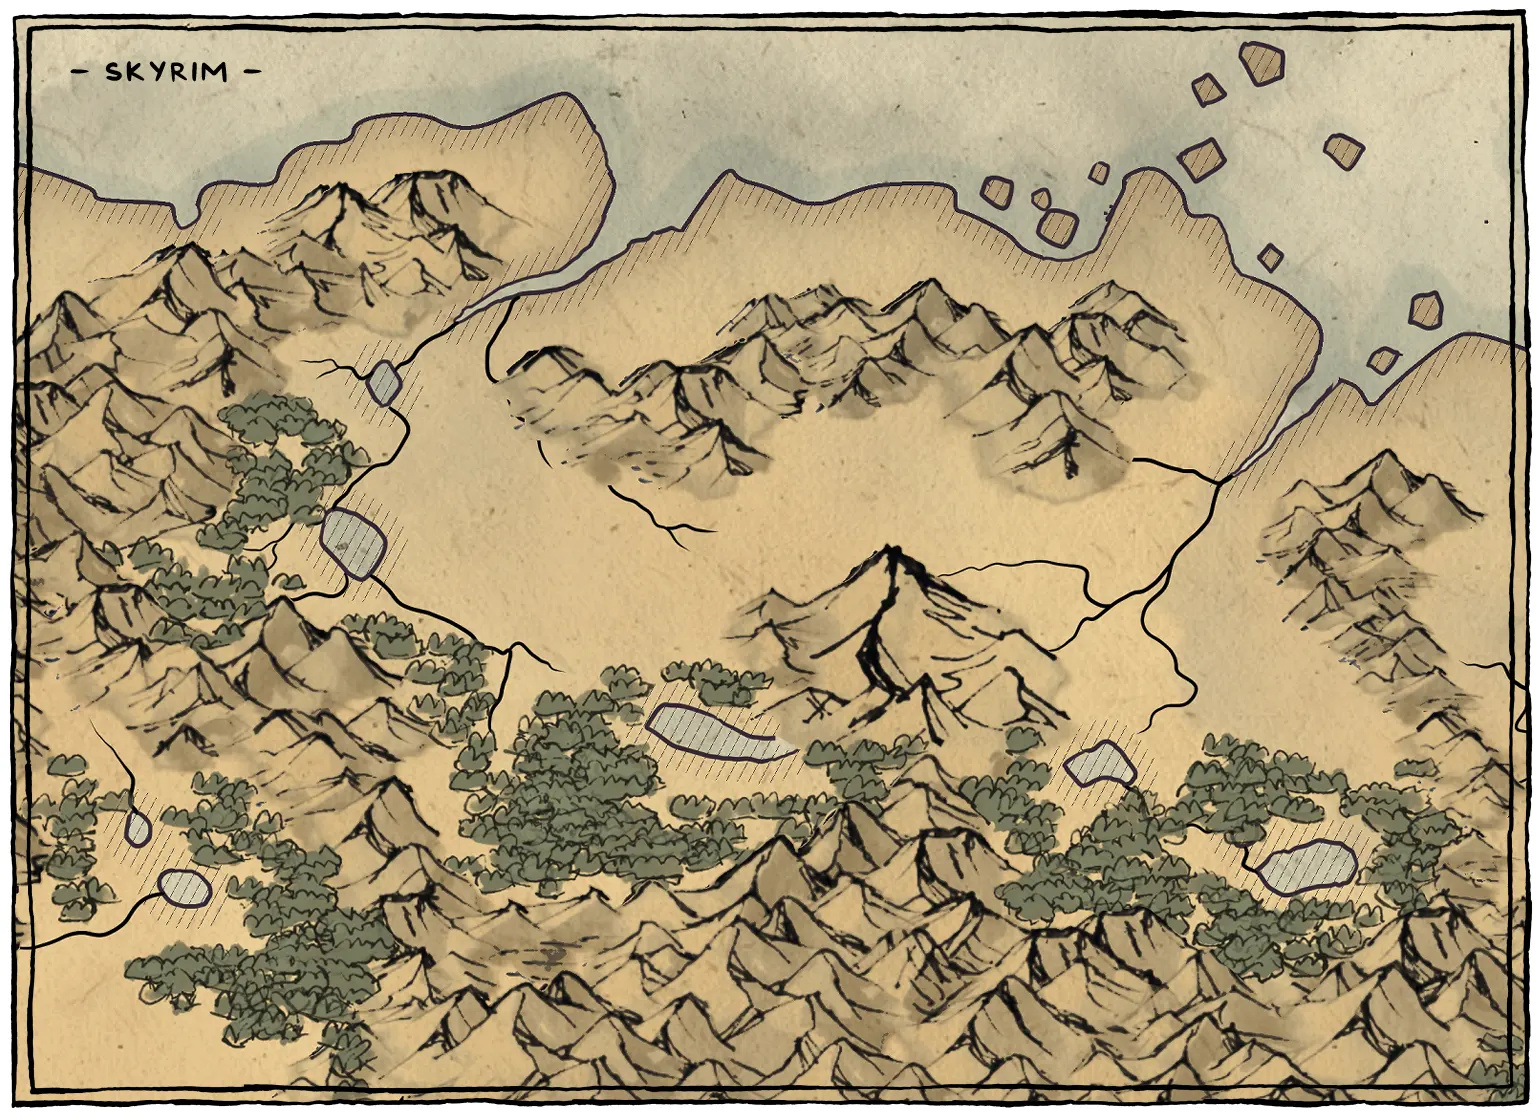 - SKYRIM -